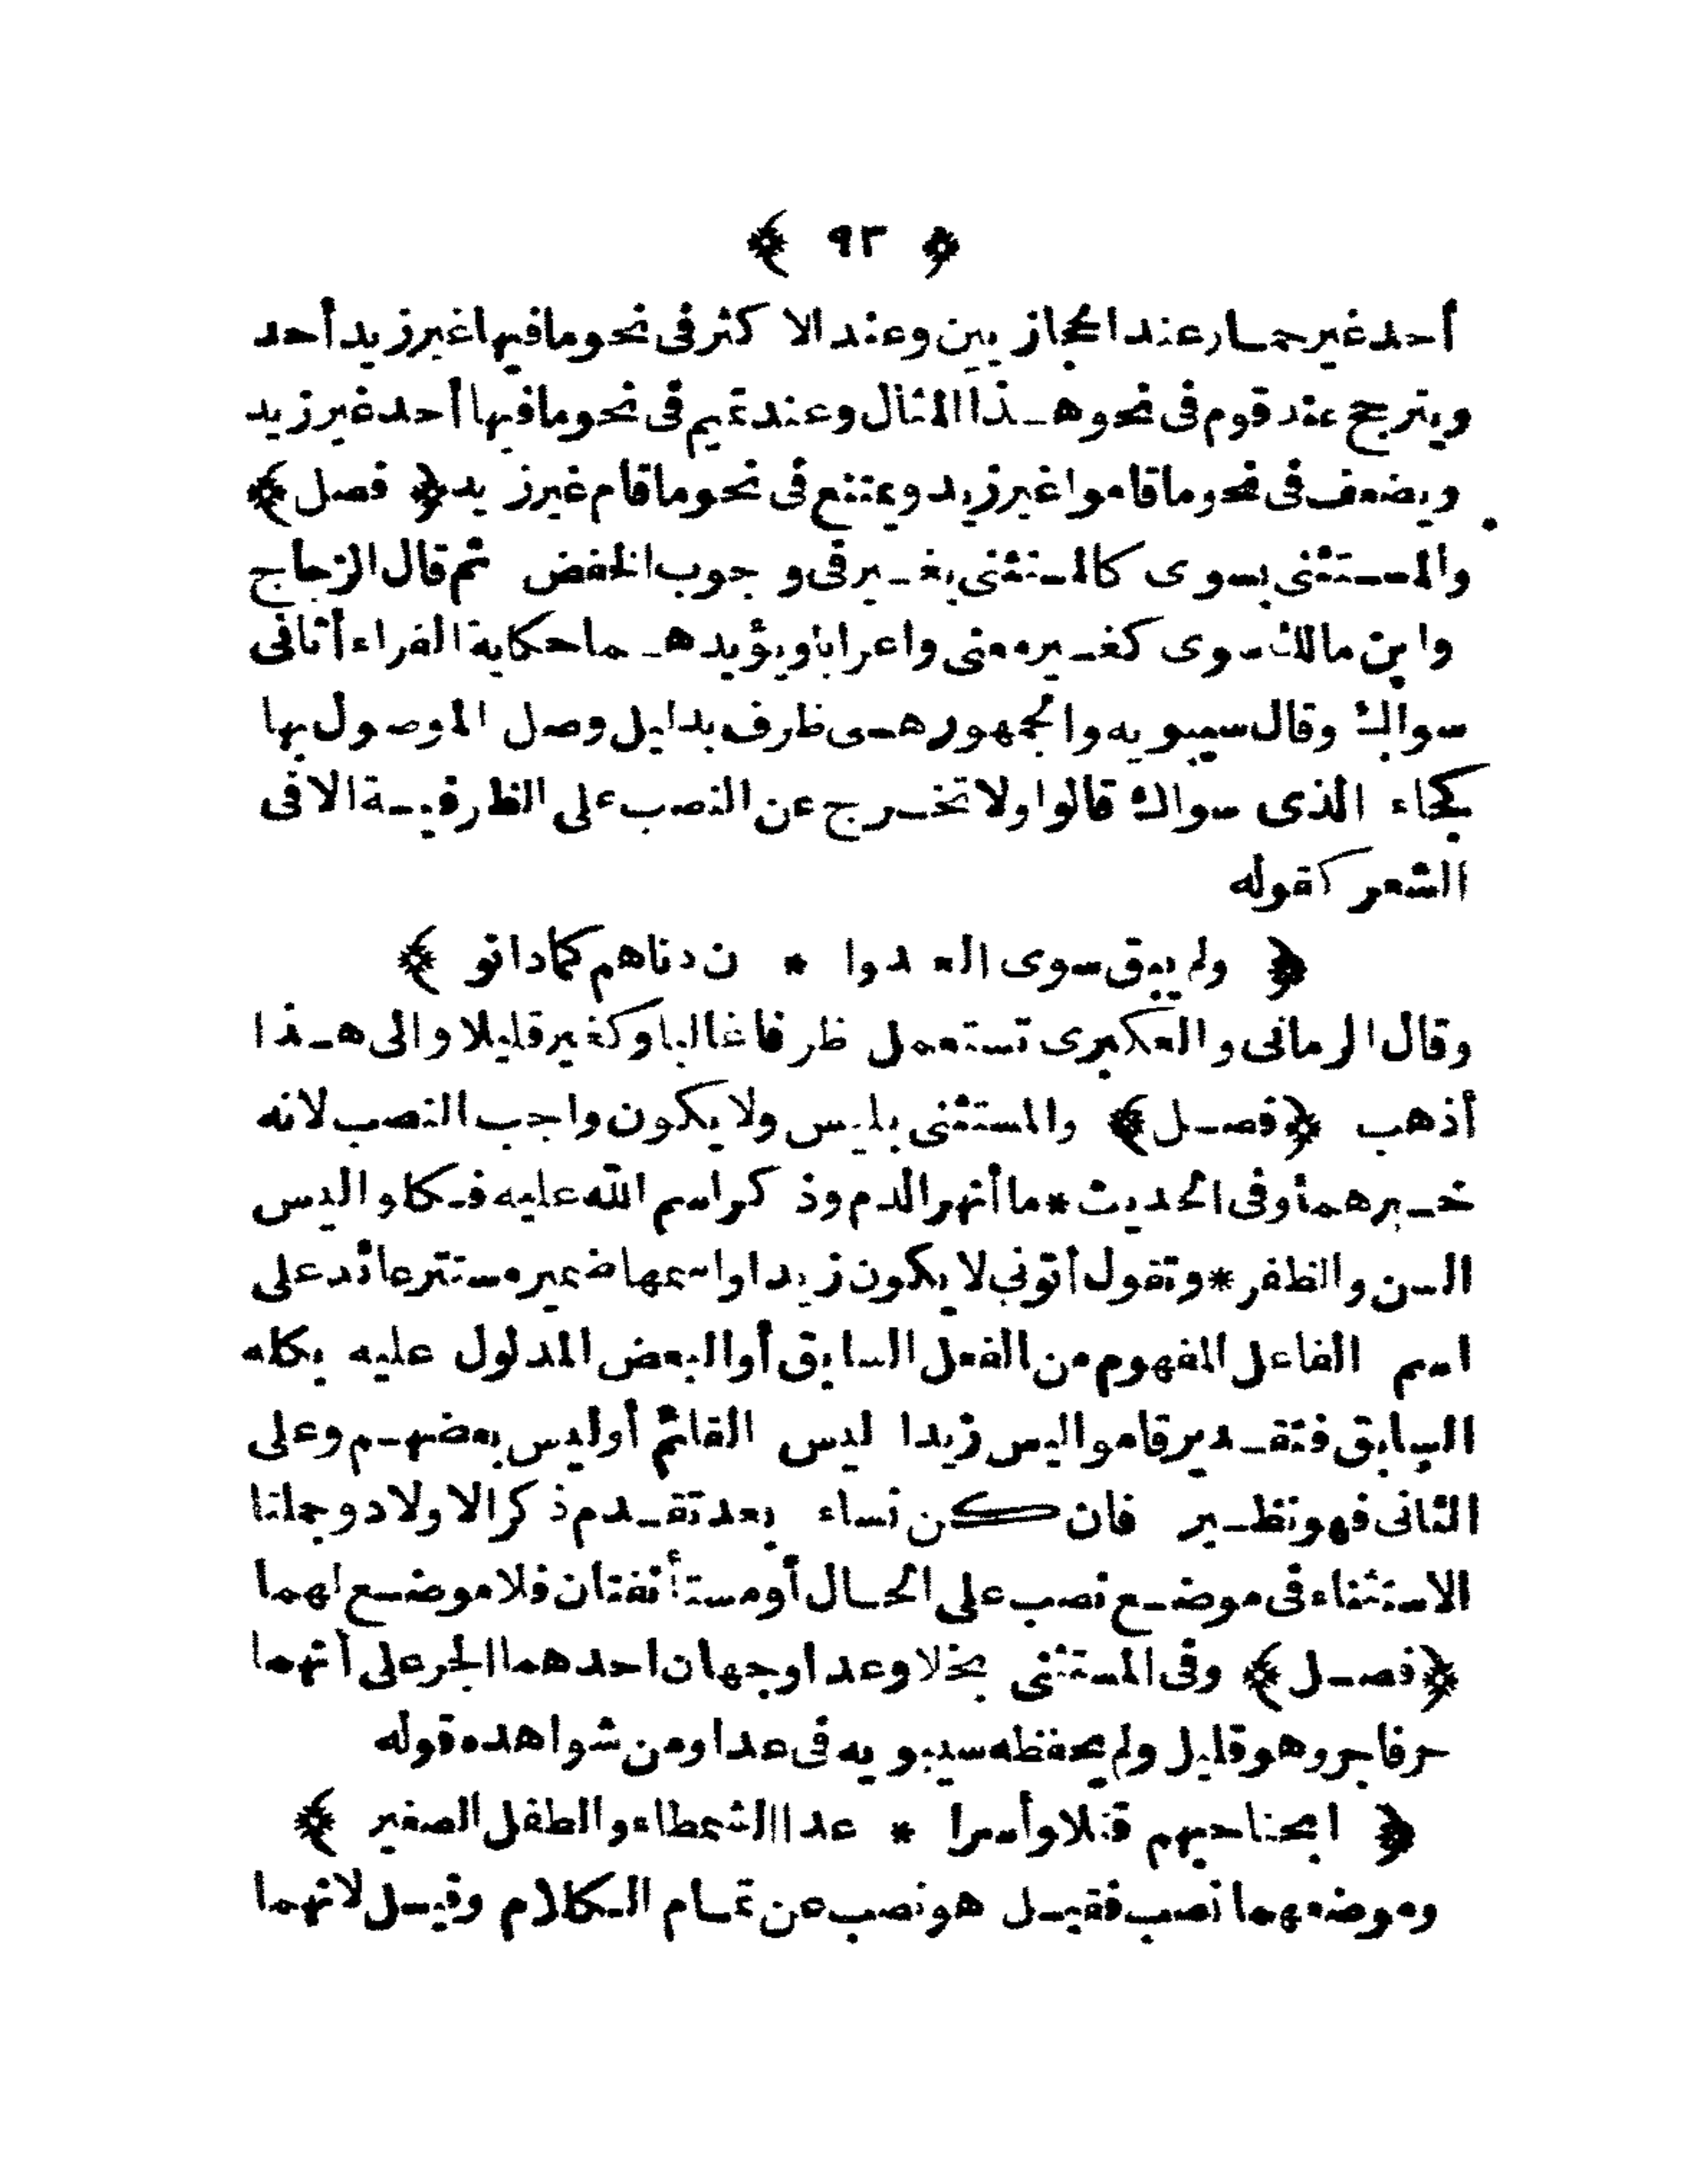 ﴿ ٩٣ ﴾
أحد غير حمار عند الحجازيين وعند الاكثر فى نحو ما فيها غير زيد أحد
ويترجح عند قوم فى نحو هذا المثال وعند تميم فى نحو ما فيها أحد غير زيد
ويضعف فى نحو ما قاموا غير زيد ويمتنع فى نحو ما قام غير زيد ﴿ فصل ﴾
والمستثنى بسوى كالمستثنى بغير فى وجوب الخفض ثم قال الزجاج
وابن مالك سوى كغير معنى واعرابا ويؤيدهما حكاية الفراء أتانى
سواك وقال سيبويه والجمهور هى ظرف بدليل وصل الموصول بها
كجاء الذى سواك قالوا ولا تخرج عن النصب على الظرفية الا فى
الشعر كقوله
﴿ ولم يبق سوى العدوا * ن دناهم كما دانو ﴾
وقال الرمانى والعكبرى تستعمل ظرفا غالبا وكغير قليلا والى هذا
أذهب ﴿ فصل ﴾ والمستثنى بليس ولا يكون واجب النصب لانه
خبرهما وفى الحديث * ما أنهر الدم وذكر اسم الله عليه فكلوا ليس
السن والظفر * وتقول أتونى لا يكون زيدا واسمها ضمير مستتر عائد على
اسم الفاعل المفهوم من الفعل السابق أو البعض المدلول عليه بكله
السابق فتقدير قاموا ليس زيدا ليس القائم أو ليس بعضهم وعلى
الثانى فهو نظير فان كن نساء بعد تقدم ذكر الاولاد وجملتا
الاستثناء فى موضع نصب على الحال أو مستأنفتان فلا موضع لهما
﴿ فصل ﴾ وفى المستثنى بخلا وعدا وجهان احدهما الجر على أنهما
حرفا جر وهو قليل ولم يحفظه سيبويه فى عدا ومن شواهده قوله
﴿ ابحنا حيهم قتلا وأسرا * عدا الشمطاء والطفل الصغير ﴾
وموضعهما نصب فقيل هو نصب عن تمام الكلام وقيل لانهما